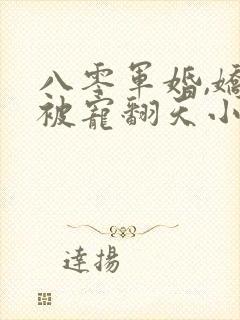 八零軍婚,嬌
被寵翻天小
達揚